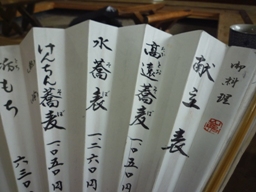 御料理
献立表
高遠蕎麦
一〇五〇円
水蕎麦
一二六〇円
けんちん蕎麦
一〇五〇円
もち
六三〇円